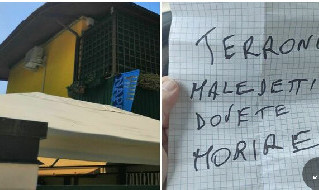 TERRONI
MALEDETTI
DOVETE
MORIRE